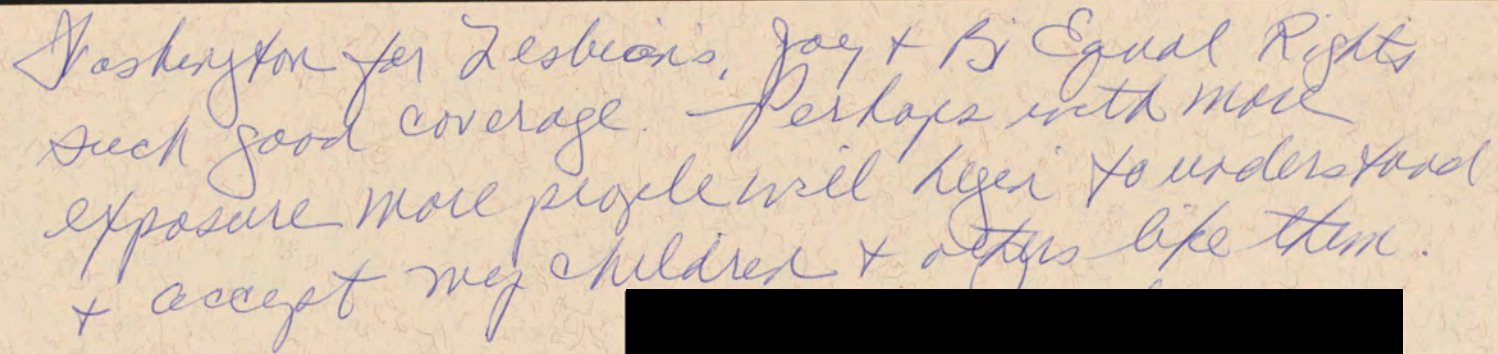 Washington for Lesbians, Gay + Bi Equal Rights
such good coverage. Perhaps with more
exposure more people will begin to understand
+ accept my children + others like them.